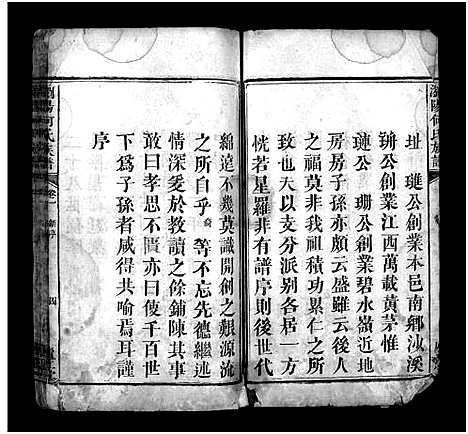 瀏陽何氏族譜
址 璉公創業本邑南鄉沙溪
公創業江西萬載黃茅惟
璉公 珊公創業碧水嶺近地
房房子孫亦頗云盛雖云後人
之福莫非我祖積功累仁之所
致也夫以支分派別各居一方
恍若星羅非有譜序則後世代
綿遠不幾莫識開創之艱源流
之所自乎 等不忘先德繼述
情深爰於教讀之餘鋪陳其事
敢曰孝思不匱亦曰使千百世
下爲子孫者咸得共喻焉耳謹
序
瀏陽何氏族譜 卷一 新序 四